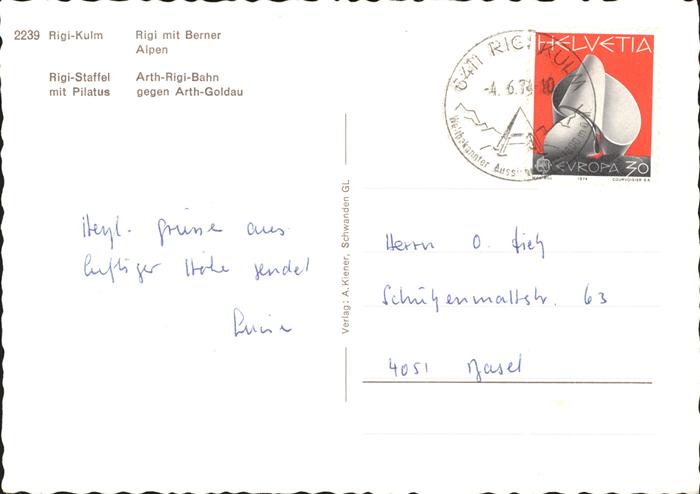 2239 Rigi-Kulm Rigi mit Berner
Alpen
Rigi-Staffel Arth-Rigi-Bahn
mit Pilatus gegen Arth-Goldau
6411 RIGI KULM
-4.6.74-10
Weltbekannter Aussi
HELVETIA
EUROPA 30
1974 COURVOISIER S.A.
Verlag: A. Kiener, Schwanden GL
Herzl. Grüsse aus
luftiger Höhe sendet
Herrn O.
Schützenmattstr. 63
4051 Basel